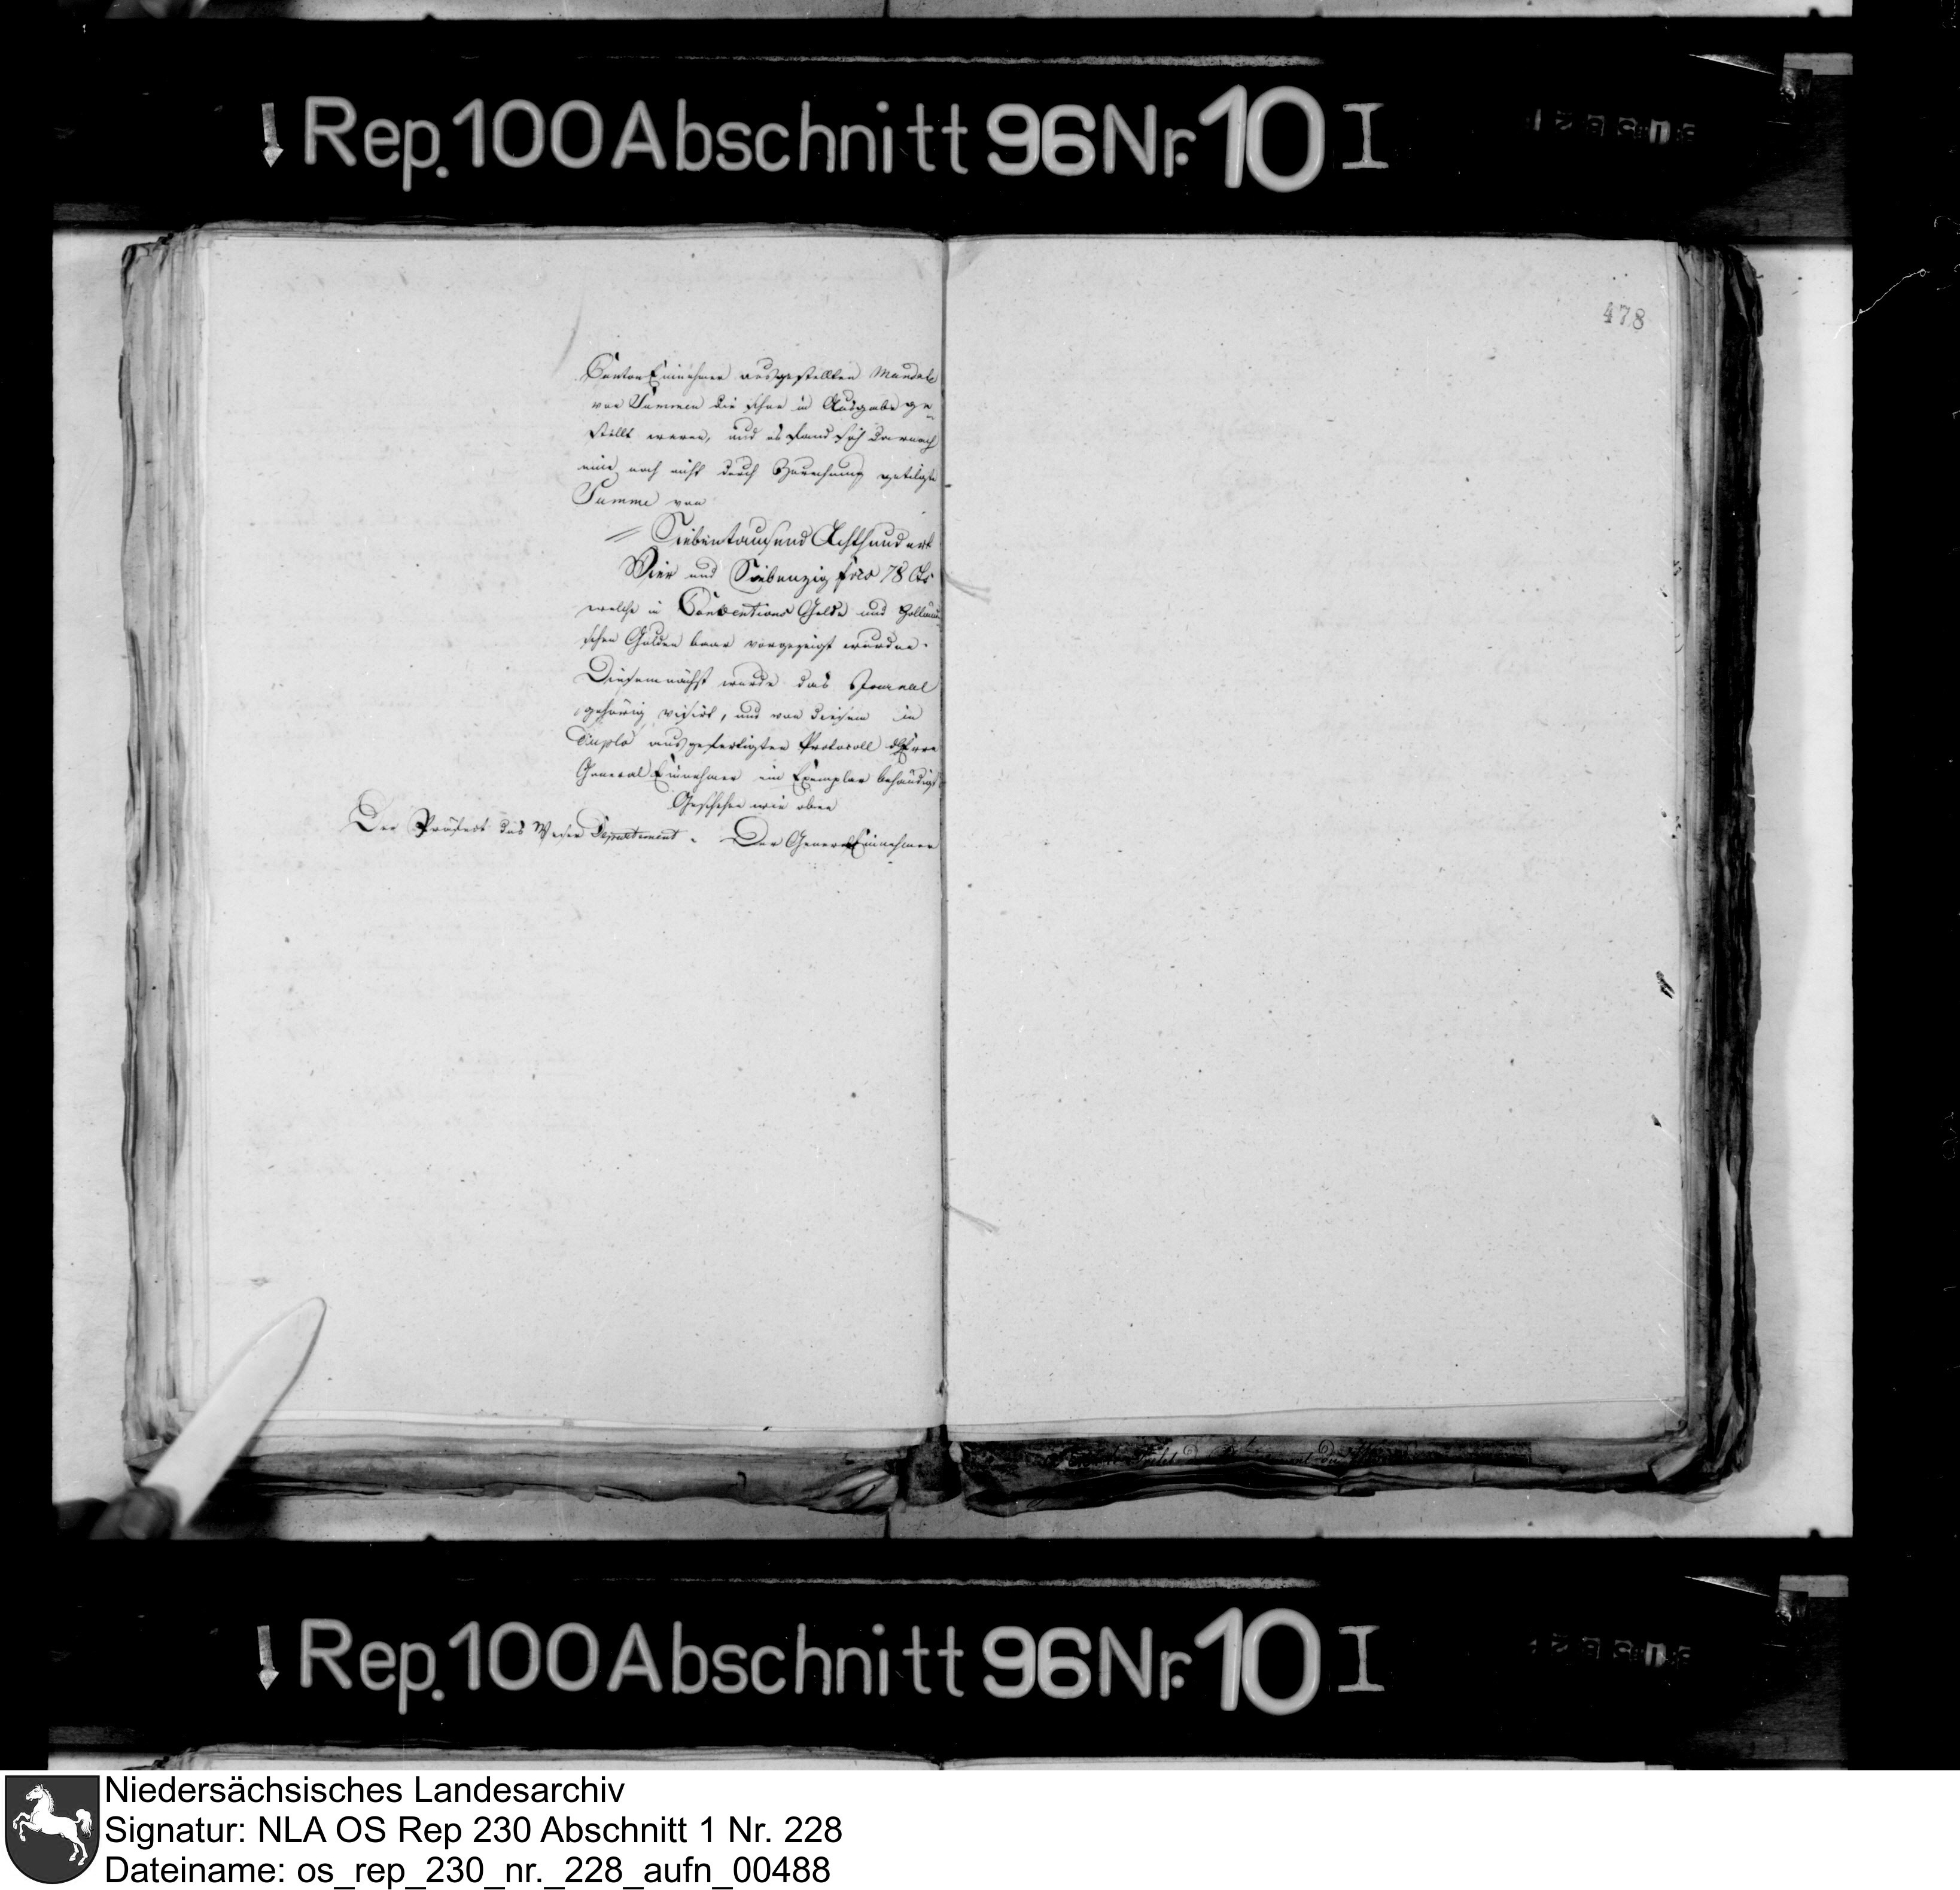 Rep. 100 Abschnitt 96 Nr. 10 I
478
Canton Einnehmer ausgestellten Mandate
vor Summen die schon in Ausgabe ge-
stellt waren, und es fand sich darnach
eine noch nicht durch Zurechnung getilgte
Summe von
Siebentausend Achthundert
Vier und Siebenzig frcs 78 Cts
welche in Conventions Gelde und Hollandi
schen Gulden baar vorgezeigt wurden.
Diesemnächst wurde das Journal
gehörig visirt, und von diesem in
Duplo ausgefertigten Protocoll dHerrn
General Einnehmer ein Exemplar behändigt
Geschehen wie oben
Der Präfect des Weser Departement. Der General Einnehmer
Rep. 100 Abschnitt 96 Nr. 10 I
Niedersächsisches Landesarchiv
Signatur: NLA OS Rep 230 Abschnitt 1 Nr. 228
Dateiname: os_rep_230_nr._228_aufn_00488